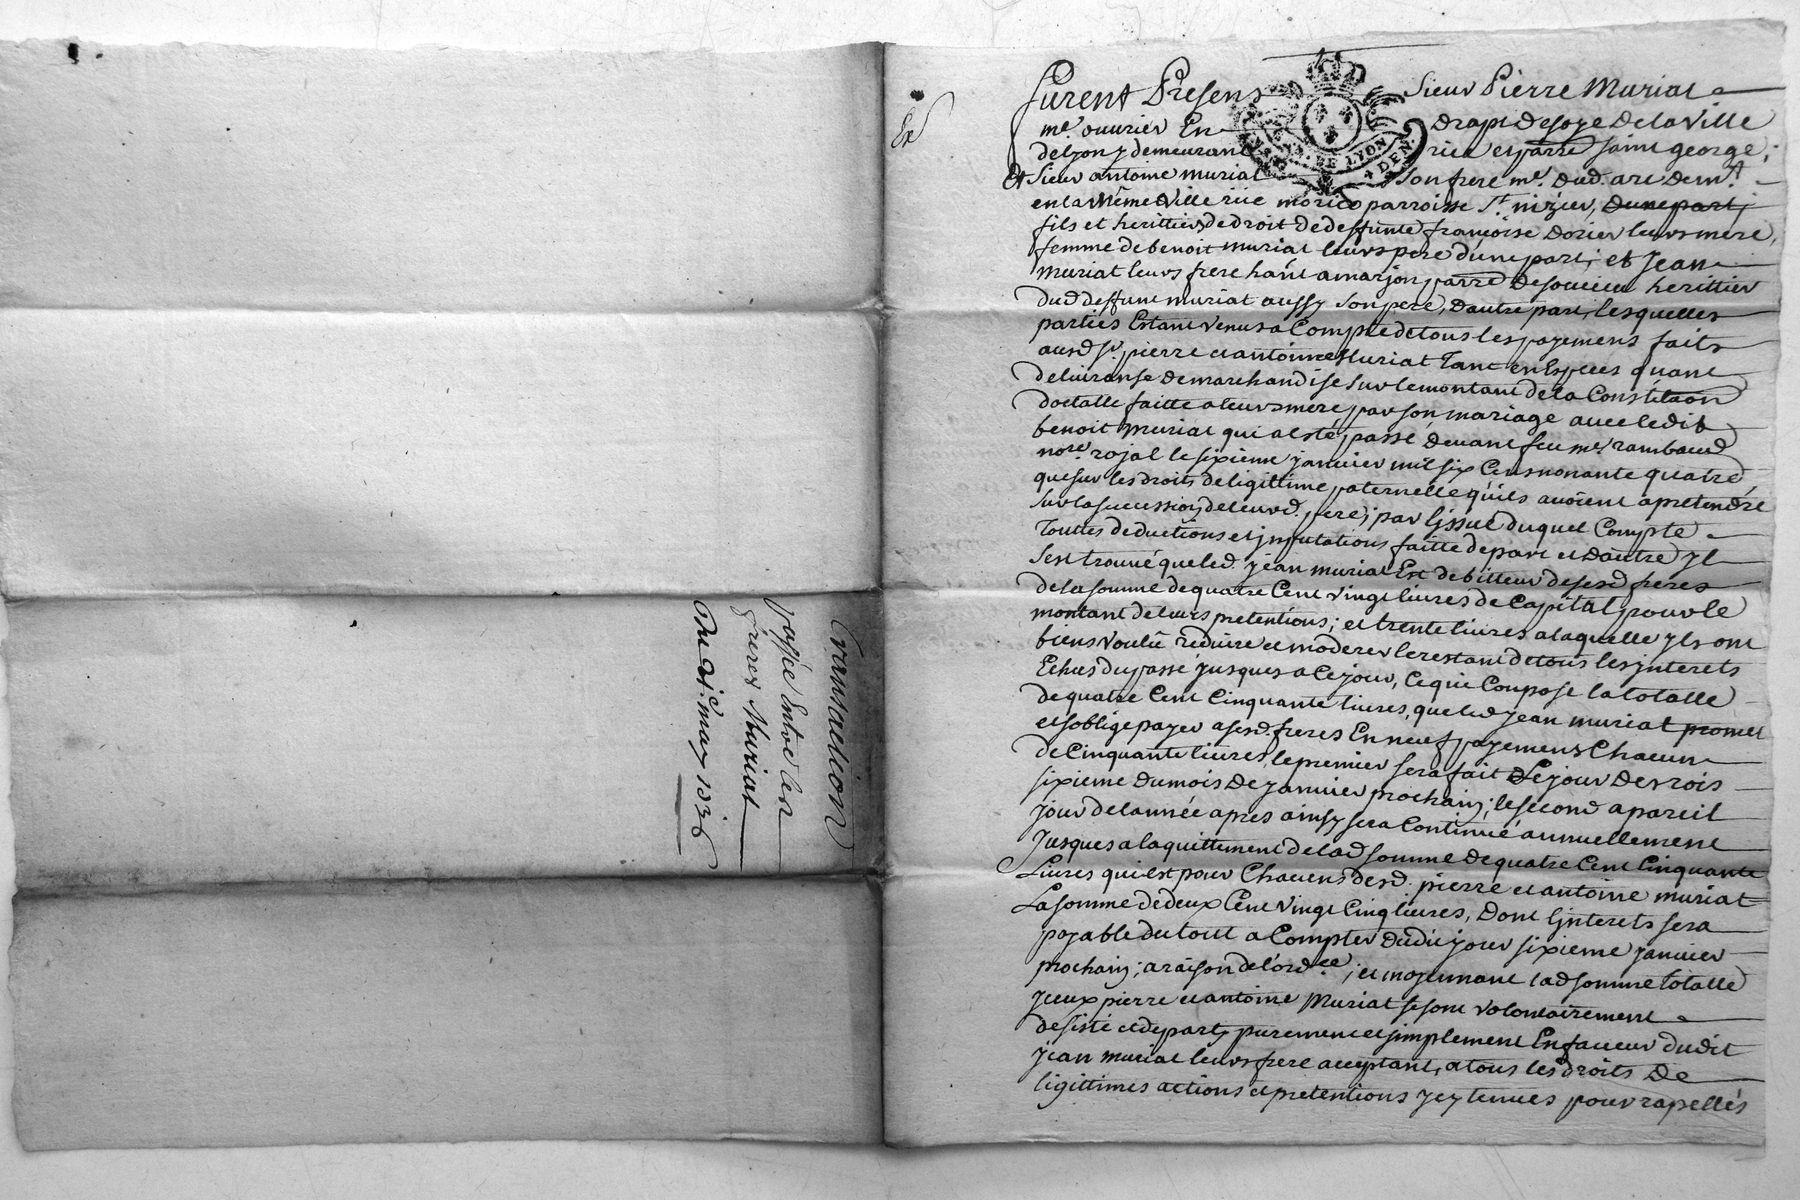 Transaction
passée Entre les
freres Muriat
Du 21e. may 1736
Ex
furent Presens Sieur Pierre Muriat
me. ouvrier En Drapt De soye De la Ville
de Lyon y demeurant rüe et parre saint george,
GEN. DE LYON
4 DEN.
Et Sieur antoine muriat son frere me. Dud. art Demt.
en la Même Ville rüe morico parroisse St. nizier, Dune part,
fils et herittiers de droit de deffunte françoise Dorier leurs mere,
femme de benoit muriat leurs pere d'une part, et Jean
Muriat leurs frere hant a marjon parre De soucieu herittier
dud deffunt muriat aussy son pere, D'autre part, lesquelles
parties Estant venus a Compte de tous les payemens faits
ausd sr. pierre et antoinne Muriat Tant en Especes quant
delivranse De marchandise sur le montant de la Constitaõn
dottalle faitte a leurs mere par son mariage avec ledit
benoit Muriat qui a esté passé Devant feu me. rambaud
nore. royal le sixieme janvier mil six Cens nonante quatre,
que sur les droits de legittime paternelle quils avoient a pretendre
sur la succession de leurd. pere, par Lissue duquel Compte
Touttes deductions et jmputations faitte de part et Dautre jl
sest trouvé que led. jean muriat Est debitteur de sesd freres
de la somme de quatre Cent vingt livres de Capital pour le
montant de leurs pretentions; et trente livres a laquelle yls ont
biens voulu reduire et moderer le restant de tous les jnterets
Echus du passé jusques a Ce jour, Ce qui Compose la totalle
de quatre Cent Cinquante livres, que led jean muriat promet
et soblige payer a sesd. freres En neuf payemens Chacun
de Cinquante livres, le premier sera fait Le jour Des rois
sixieme Du mois De janvier prochain; le second a pareil
jour de lannée apres ainsy sera Continué annuellement
Jusques a laquittement de lad somme De quatre Cent Cinquante
Livres qui est pour Chacuns desd. pierre et antoine muriat
La somme de deux Cent vingt Cinq livres, Dont Ljnterets sera
payable du tout a Compter Dudit jour sixieme janvier
prochain; a raison de lordce; et moyennant lad somme totalle
jceux pierre et antoine Muriat se sont volontairement
desisté et departy purement et simplement En faveur dudit
jean muriat leurs frere acceptant, a tous les droits De
ligittimes actions et pretentions jcy tenues pour rapellés